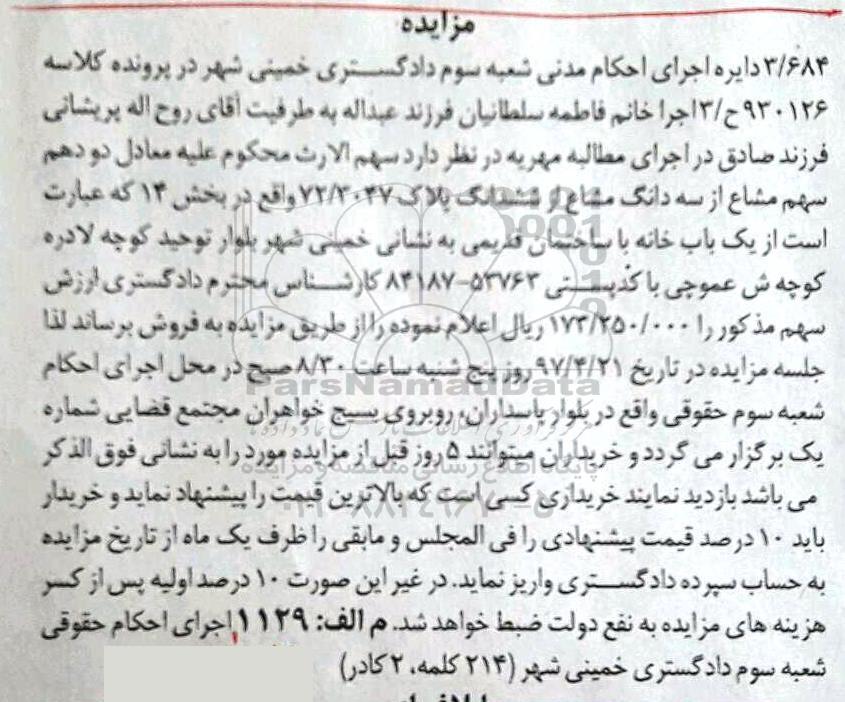 مزایده
۳/۶۸۴ دایره اجرای احکام مدنی شعبه سوم دادگستری خمینی شهر در پرونده کلاسه
۹۳۰۱۲۶ ح/۳ اجرا خانم فاطمه سلطانیان فرزند عبداله به طرفیت آقای روح اله پریشانی
فرزند صادق در اجرای مطالبه مهریه در نظر دارد سهم الارث محکوم علیه معادل دو دهم
سهم مشاع از سه دانگ مشاع از ششدانگ پلاک ۷۲/۲۰۴۷ واقع در بخش ۱۴ که عبارت
است از یک باب خانه با ساختمان قدیمی به نشانی خمینی شهر بلوار توحید کوچه لادره
کوچه ش عموچی با کدپستی ۵۳۷۶۳-۸۴۱۸۷ کارشناس محترم دادگستری ارزش
سهم مذکور را ۱۷۳/۲۵۰/۰۰۰ ریال اعلام نموده را از طریق مزایده به فروش برساند لذا
جلسه مزایده در تاریخ ۹۷/۴/۲۱ روز پنج شنبه ساعت ۸/۳۰ صبح در محل اجرای احکام
شعبه سوم حقوقی واقع در بلوار پاسداران، روبروی بسیج خواهران مجتمع قضایی شماره
یک برگزار می گردد و خریداران میتوانند ۵ روز قبل از مزایده مورد را به نشانی فوق الذکر
می باشد بازدید نمایند خریداری کسی است که بالاترین قیمت را پیشنهاد نماید و خریدار
باید ۱۰ درصد قیمت پیشنهادی را فی المجلس و مابقی را ظرف یک ماه از تاریخ مزایده
به حساب سپرده دادگستری واریز نماید. در غیر این صورت ۱۰ درصد اولیه پس از کسر
هزینه های مزایده به نفع دولت ضبط خواهد شد. م الف: ۱۱۲۹ اجرای احکام حقوقی
شعبه سوم دادگستری خمینی شهر (۲۱۴ کلمه، ۲ کادر)
ParsNamadData
پایگاه اطلاع رسانی مناقصه و مزایده